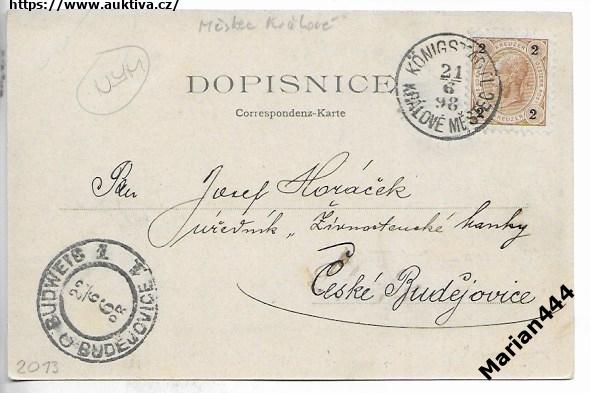 https://www.auktiva.cz/
Městec Králové
DOPISNICE
Correspondenz-Karte
2 KREUZER 2
2 KREUZER 2
KÖNIGSTADTL
21
6
98
KRÁLOVÉ MĚSTEC
Pan Josef Horáček
úředník „Živnostenské banky
České Budějovice
BUDWEIS 1
BUDĚJOVICE
2013
Marian444